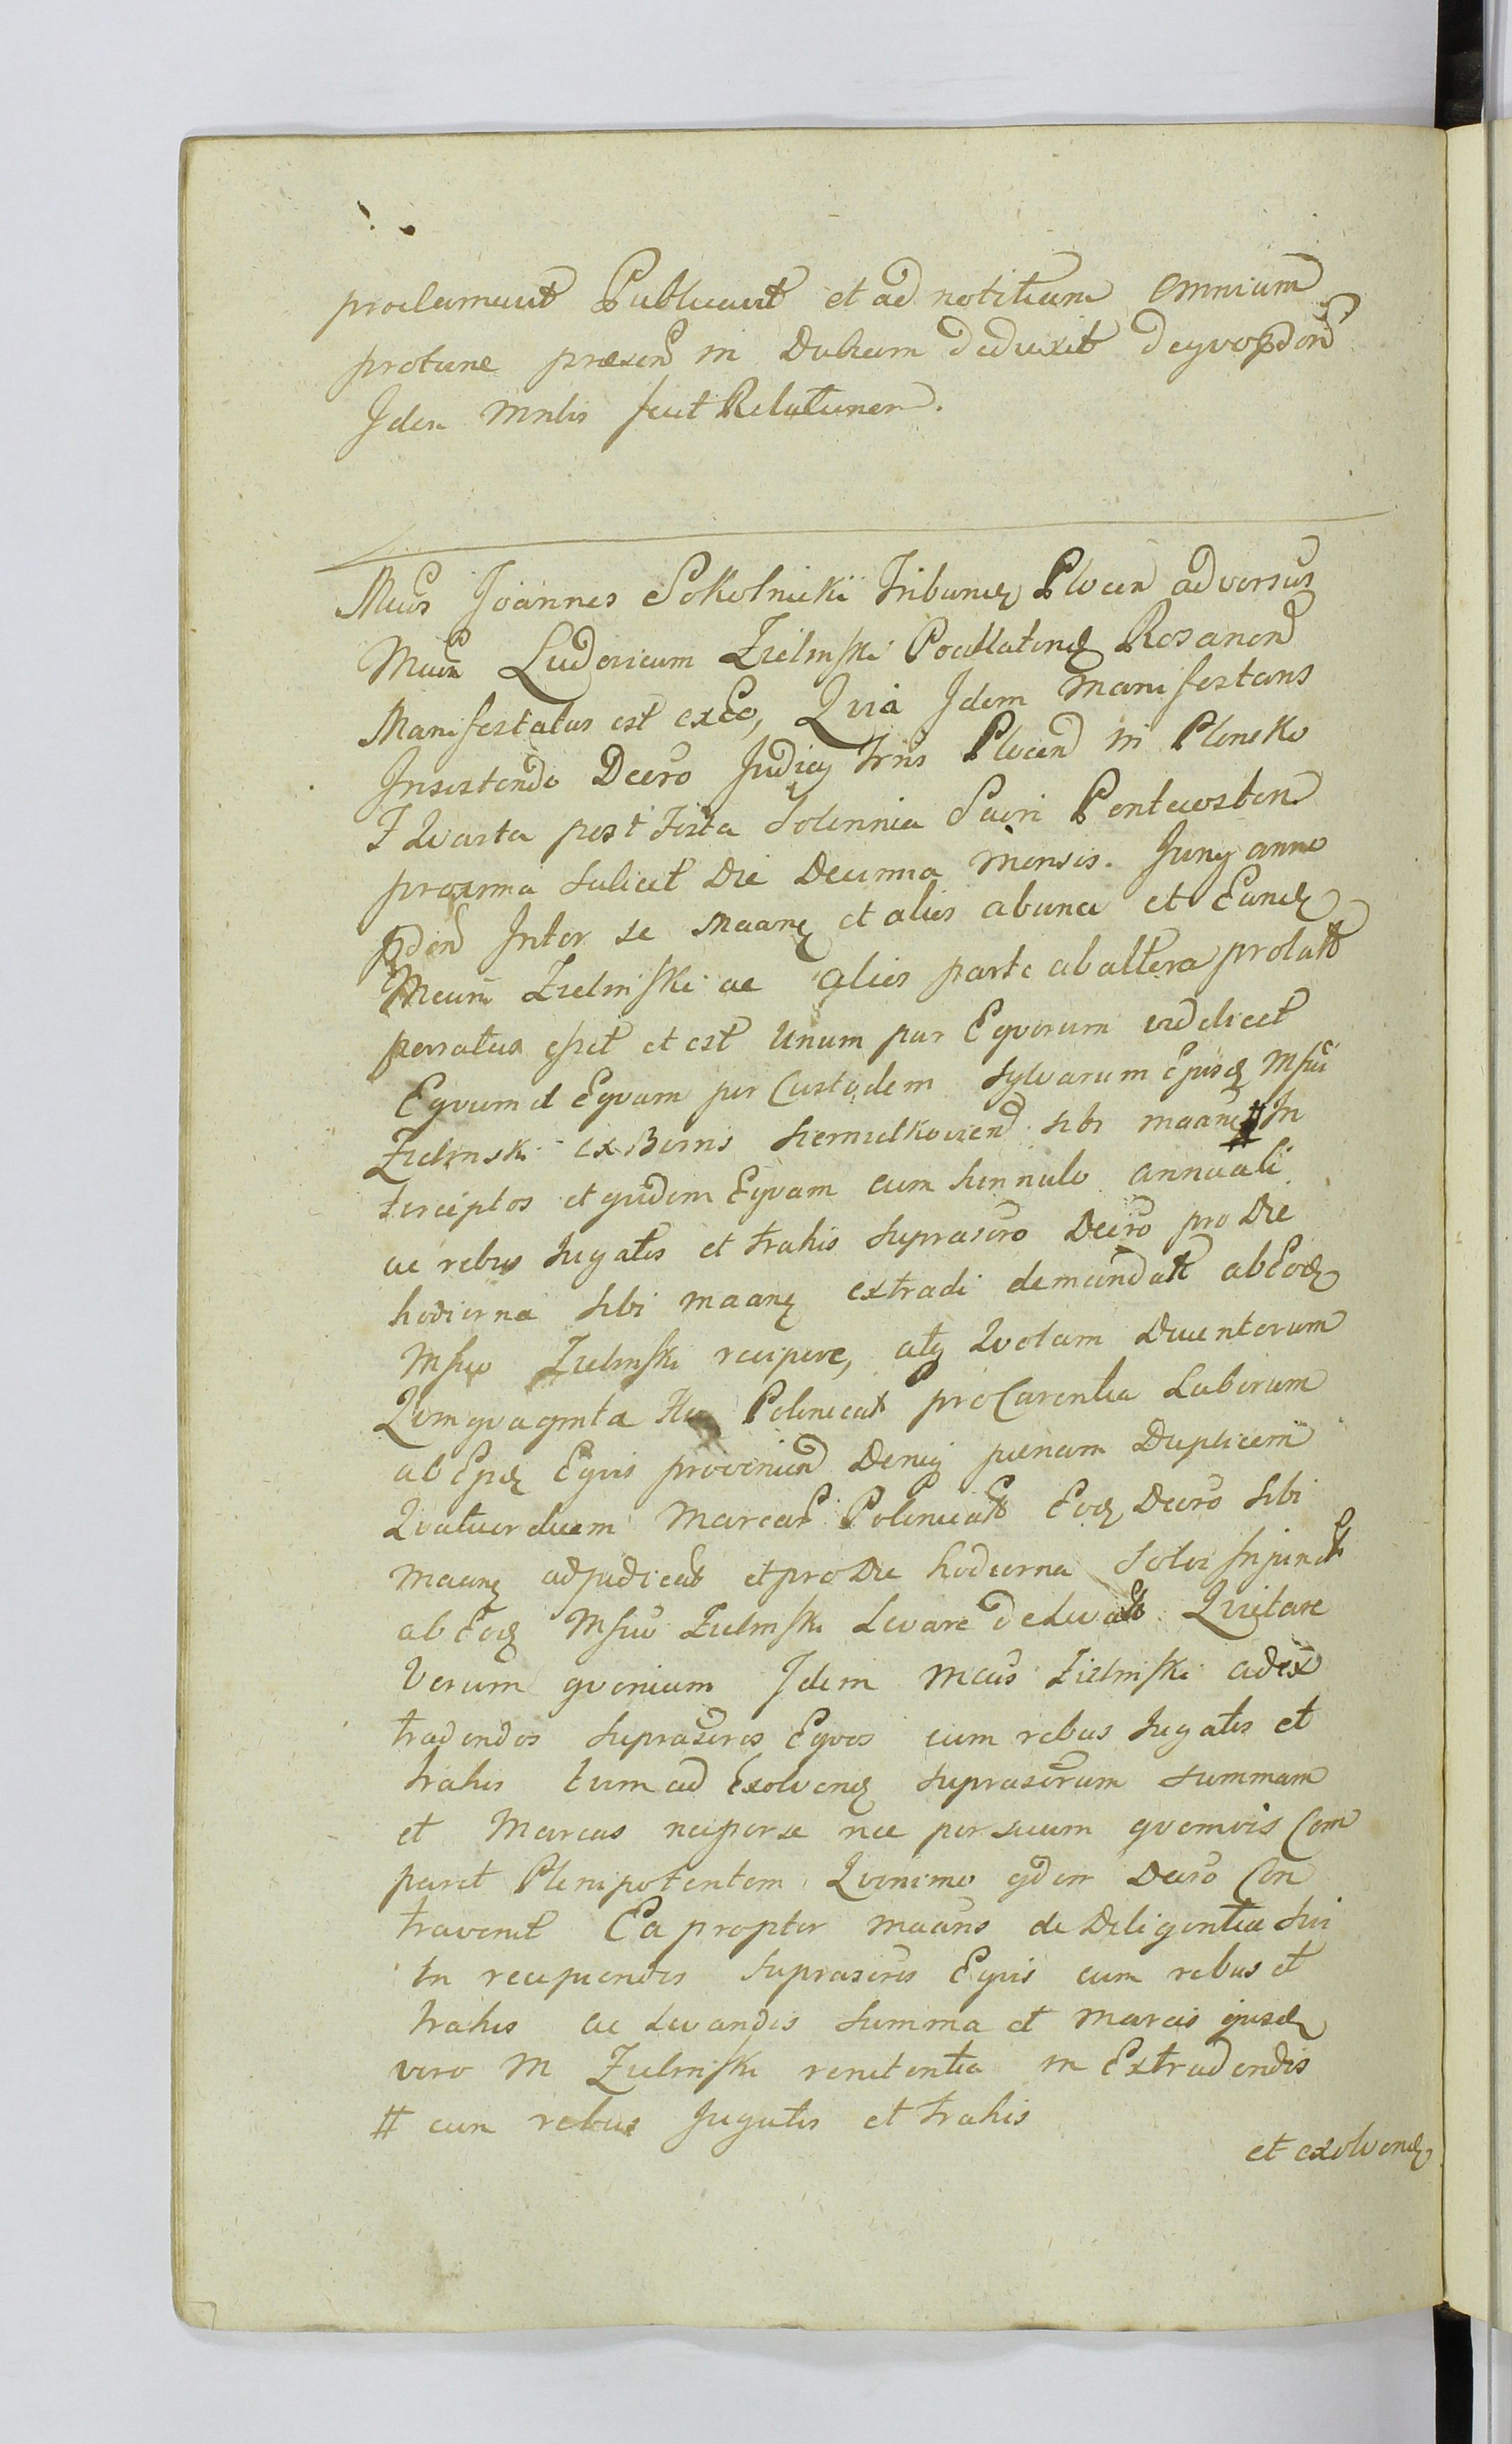 proclamavit Publicavit et ad notitiam Omnium
protunc praesen in Dubium deduxit deqvo pdon
Idem Mnlis fecit Relationem.
Mcus Joannes Sokolnicki Tribunus Plocen adversus
Mcum Ludovicum Zielinski Pocillatorem Rosanen
Manifestatus est exeo, Qvia Idem Manifestans
Insistendo Decro Judicy Trris Plocen in Plonsko
F Qvarta post Festa Solennia Sacri Pentecosten
proxima scilicet Die Decima Mensis Juny anno
pden Inter se Maanem et alios abuna et Eundem
Mcum Zielinski ac alios parte ab altera prolato
paratus esset et est Unum par Eqvorum videlicet
Eqvum et Eqvam per Custodem Sylvarum Ejusdem Mfici
Zielinski ex Bonis sibi maanti # In
terceptos et qvidem Eqvam cum hinnulo annuali
ac rebus Jugatis et trahis suprascro Decro pro Die
hodierna sibi maanti extradi demandat ab Eodem
Mfico Zielinski recipere, atq Qvotam Ducentorum
Qvinqvaginta Polonical pro Carentia Laborum
ab Eqvis provenien Deniq paenam Duplicem
Qvatuordecim Marcar Polonical Eodem Decro sibi
maanti adjudicat et pro Die hodierna Solvi Injunct
ab Eodem Mfico Zielinski Levare deLevat Qvietare
Verum qvoniam Idem Mcus Zielinski ad ex
tradendos suprascros Eqvos cum rebus Jugatis et
trahis tum ad Exolvend suprascram summam
et Marcas nec per se nec per suum qvemvis Com
paret Plenipotentem Qvinimo Decro Con
travenit Ea propter maans de Diligentia sui
in recipiendis suprascris Eqvis cum rebus et
trahis ac Levandis summa et Marcis ejusdem
vero M Zielinski renitentia in Extradendis
# cum rebus Jugatis et trahis
et exolvend